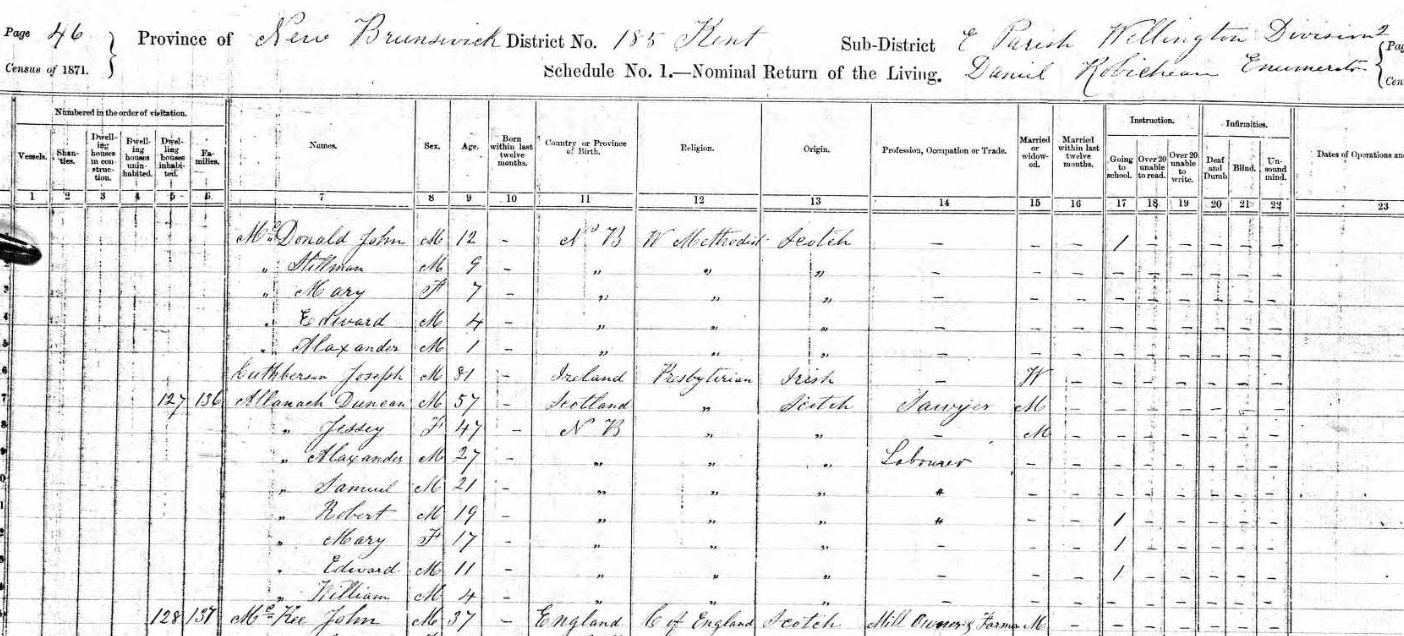 Page 46 } Province of New Brunswick District No. 185 Kent Sub-District E Parish Wellington Division 2 { Pag
Census of 1871. Schedule No. 1.—Nominal Return of the Living. Daniel Robicheau Enumerator Cen
Numbered in the order of visitation. Instruction. Infirmities.
Vessels. Shan-ties. Dwell-ing houses in con-struc-tion. Dwell-ing houses unin-habited. Dwel-ling houses inhabi-ted. Fa-milies. Names. Sex. Age. Born within last twelve months. Country or Province of Birth. Religion. Origin. Profession, Occupation or Trade. Married or widow-ed. Married within last twelve months. Going to school. Over 20 unable to read. Over 20 unable to write. Deaf and Dumb Blind. Un-sound mind. Dates of Operations an
1 2 3 4 5 6 7 8 9 10 11 12 13 14 15 16 17 18 19 20 21 22 23
Mc Donald John M 12 - N B W Methodist Scotch - - - 1 - - - - -
2 " Stillman M 9 - " " " - - - - - - - - -
3 " Mary F 7 - " " " - - - - - - - - -
4 " Edward M 4 - " " " - - - - - - - - -
5 " Alaxander M 1 - " " " - - - - - - - - -
6 Cuthberson Joseph M 81 - Ireland Presbyterian Irish - W - - - - - - -
7 127 136 Allanach Duncan M 57 - Scotland " Scotch Sawyer M - - - - - - -
8 " Jessey F 47 - N B " " - M - - - - - - -
9 " Alaxander M 27 - " " " Labourer - - - - - - - -
0 " Samuel M 21 - " " " " - - - - - - - -
1 " Robert M 19 - " " " " - - 1 - - - - -
2 " Mary F 17 - " " " - - - 1 - - - - -
3 " Edward M 11 - " " " - - - 1 - - - - -
4 " William M 4 - " " " - - - - - - - - -
128 137 Mc Kee John M 37 - England C of England Scotch Mill Owner & Farmer M - - - - - - -